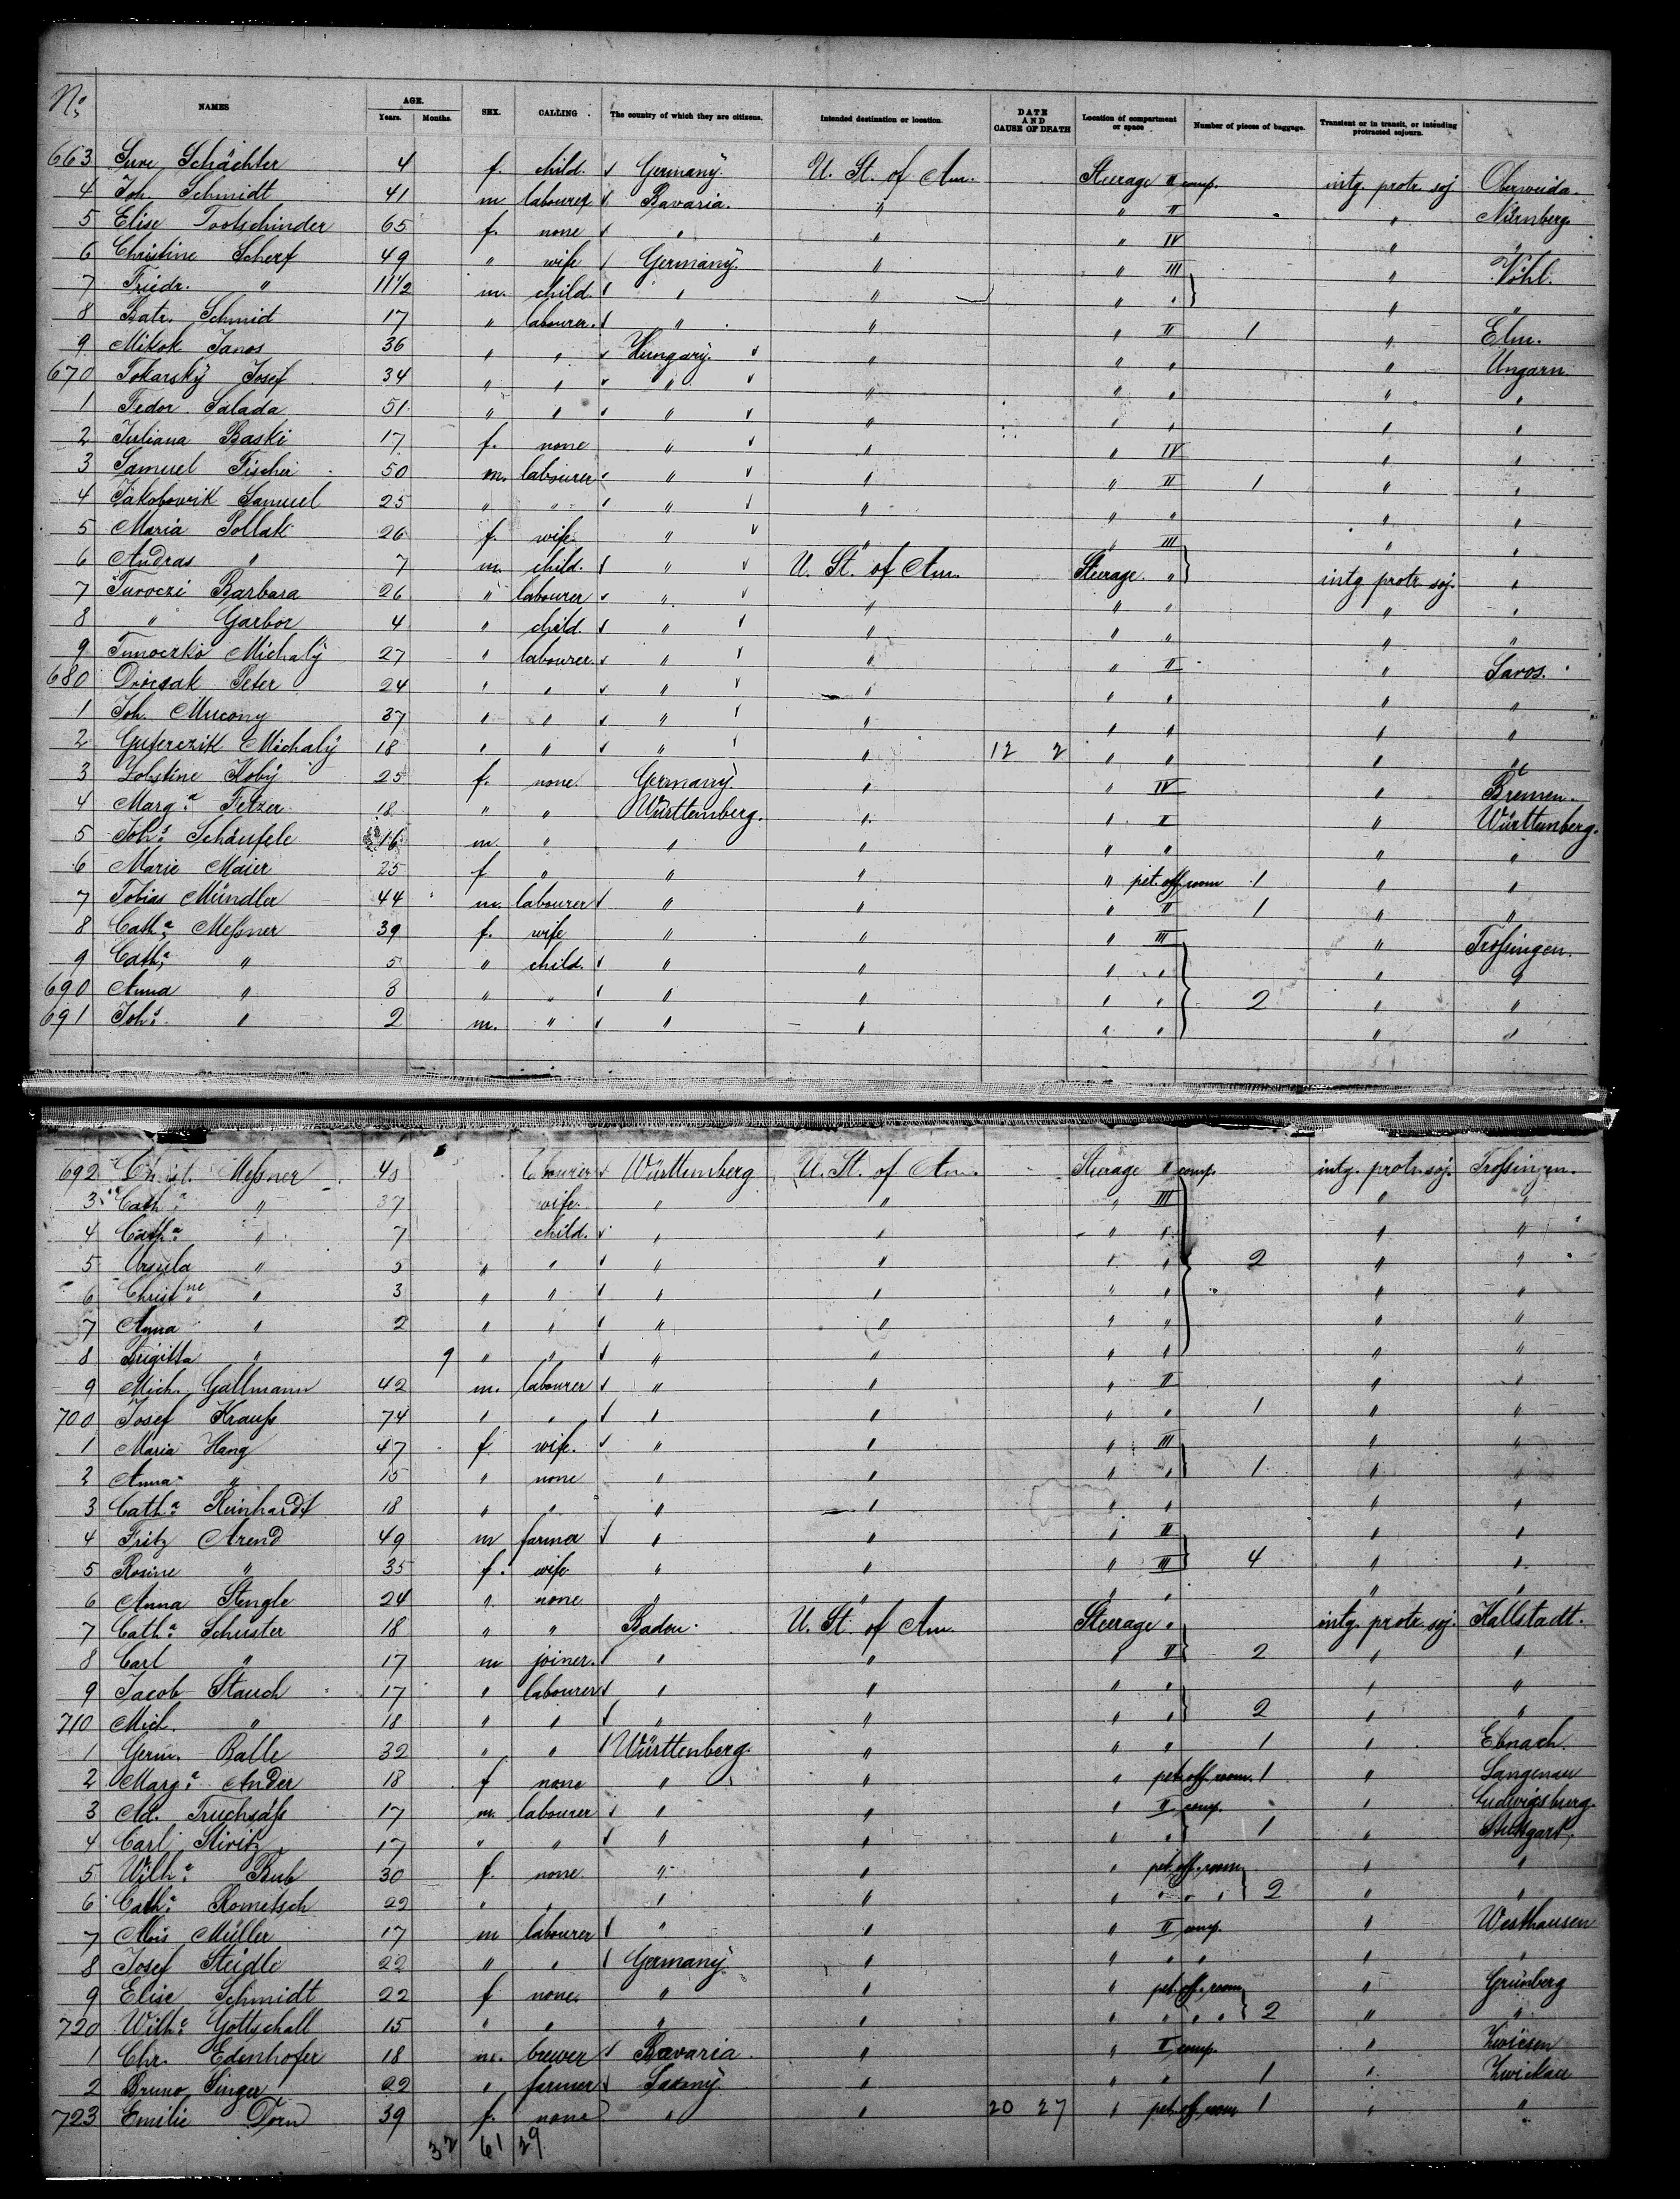 No. NAMES AGE. Years. Months. SEX. CALLING. The country of which they are citizens. Intended destination or location. DATE AND CAUSE OF DEATH Location of compartment or space Number of pieces of baggage. Transient or in transit, or intending protracted sojourn.
663 Schächter 4 f. child. Germany. U. St. of Am. Steerage II comp. intg. protr. soj Oberweida.
4 Joh. Schmidt 41 m labourer Bavaria. " " II " Nürnberg.
5 Elise 65 f. none " " " IV " "
6 Christine Scherf 49 " wife Germany. " " III " Vöhl.
7 Friedr. " 11 1/2 m. child. " " " " " "
8 Batr. Schmid 17 " labourer. " " " II 1 " Elm.
9 Mikok Janos 36 " " Hungary. " " " " Ungarn.
670 Tokarsky Josef 34 " " " " " " " "
1 Fedor Salada 51 " " " " " " " "
2 Juliana Baski 17 f. none " " " IV " "
3 Samuel Fischer 50 m. labourer " " " II 1 " "
4 Jakobowik Samuel 25 " " " " " " " "
5 Maria Pollak 26 f. wife " " " III " "
6 Andras " 7 m. child. " U. St. of Am. Steerage " intg protr soj. "
7 Turoczi Barbara 26 " labourer " " " " " "
8 " Garbor 4 " child. " " " " " "
9 Michaly 27 " labourer " " " II " Saros.
680 Peter 24 " " " " " " " "
1 Joh. Mucony 37 " " " " " " " "
2 Michaly 18 " " " " 12 2 " " " "
3 Koby 25 f. none. Germany. " " IV " Bremen.
4 Marg.a Fetzer 18 " " Württemberg. " " II " Württemberg.
5 Joh.s Schäufele 16 m. " " " " " " "
6 Marie Maier 25 f " " " " pet. off. room 1 " "
7 Tobias Mündler 44 m. labourer " " " II 1 " "
8 Cath.a Meßner 39 f. wife " " " III " Troßingen.
9 Cath.a " 5 " child. " " " " " "
690 Anna " 3 " " " " " " 2 " "
691 Joh.s " 2 m. " " " " " " "
692 Meßner labourer Württemberg U. St. of Am. Steerage II comp. intg. protr. soj. Troßingen.
3 Cath.a " 37 wife. " " " III " "
4 Cath.a " 7 child. " " " " " "
5 Ursula " 5 " " " " " " 2 " "
6 Christne " 3 " " " " " " " "
7 Anna " 2 " " " " " " " "
8 Brigitta " 9 " " " " " " " "
9 Mich. Gallmann 42 m. labourer " " " II " "
700 Josef Krauß 74 " " " " " " 1 " "
1 Maria Hang 47 f. wife. " " " III " "
2 Anna " 15 " none " " " " 1 " "
3 Cath.a Reinhardt 18 " " " " " " " "
4 Fritz Arend 49 m farmer " " " II " "
5 Rosine " 35 f. wife " " " III 4 " "
6 Anna Stengle 24 " none " " " " " "
7 Cath.a Schuster 18 " " Baden. U. St. of Am. Steerage " intg. protr. soj. Hallstadt.
8 Carl " 17 m joiner. " " " II 2 " "
9 Jacob Stauch 17 " labourer " " " " " "
710 Mich. " 18 " " " " " " 2 " "
1 Germ. Balle 32 " " Württenberg. " " " 1 " Ebnach.
2 Marg.a Ander 18 f none " " " pet. off. room. 1 " Langenau
3 Ad. Truchsäß 17 m. labourer " " " II comp. " Ludwigsburg.
4 Carl 17 " " " " " " 1 " Stuttgart.
5 Wilh.a Bub 30 f. none. " " " pet. off. room " "
6 Cath.a Rometsch 22 " " " " " " " " 2 " "
7 Alois Müller 17 m labourer " " " II comp. " Westhausen
8 Josef Steidle 22 " " Germany. " " " " " "
9 Elise Schmidt 22 f none. " " " pet. off. room " Grünberg
720 Wilh.e Gottschall 15 " " " " " " " " 2 " "
1 Chr. Edenhofer 18 m. brewer Bavaria " " II comp. " Zwiesen
2 Bruno Singer 22 " farmer Saxony. " " " 1 " Zwickau
723 Emilie Dorn 39 f. none " " 20 27 " pet. off. room 1 " "
32 61 29